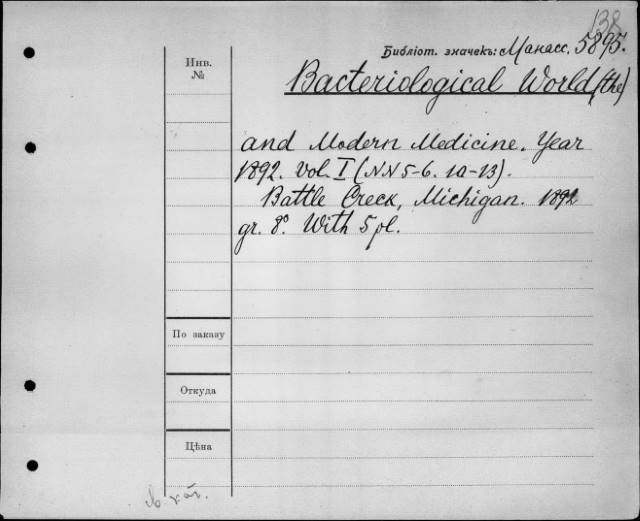 138
Библіот. значекъ: Манасс. 5895.
Инв.
№
Bacteriological World (the)
and Modern Medicine. Year
1892. vol. I (NN 5-6. 10-13).
Battle Creck, Michigan. 1892
gr. 8°. With 5 pl.
По заказу
Откуда
Цѣна